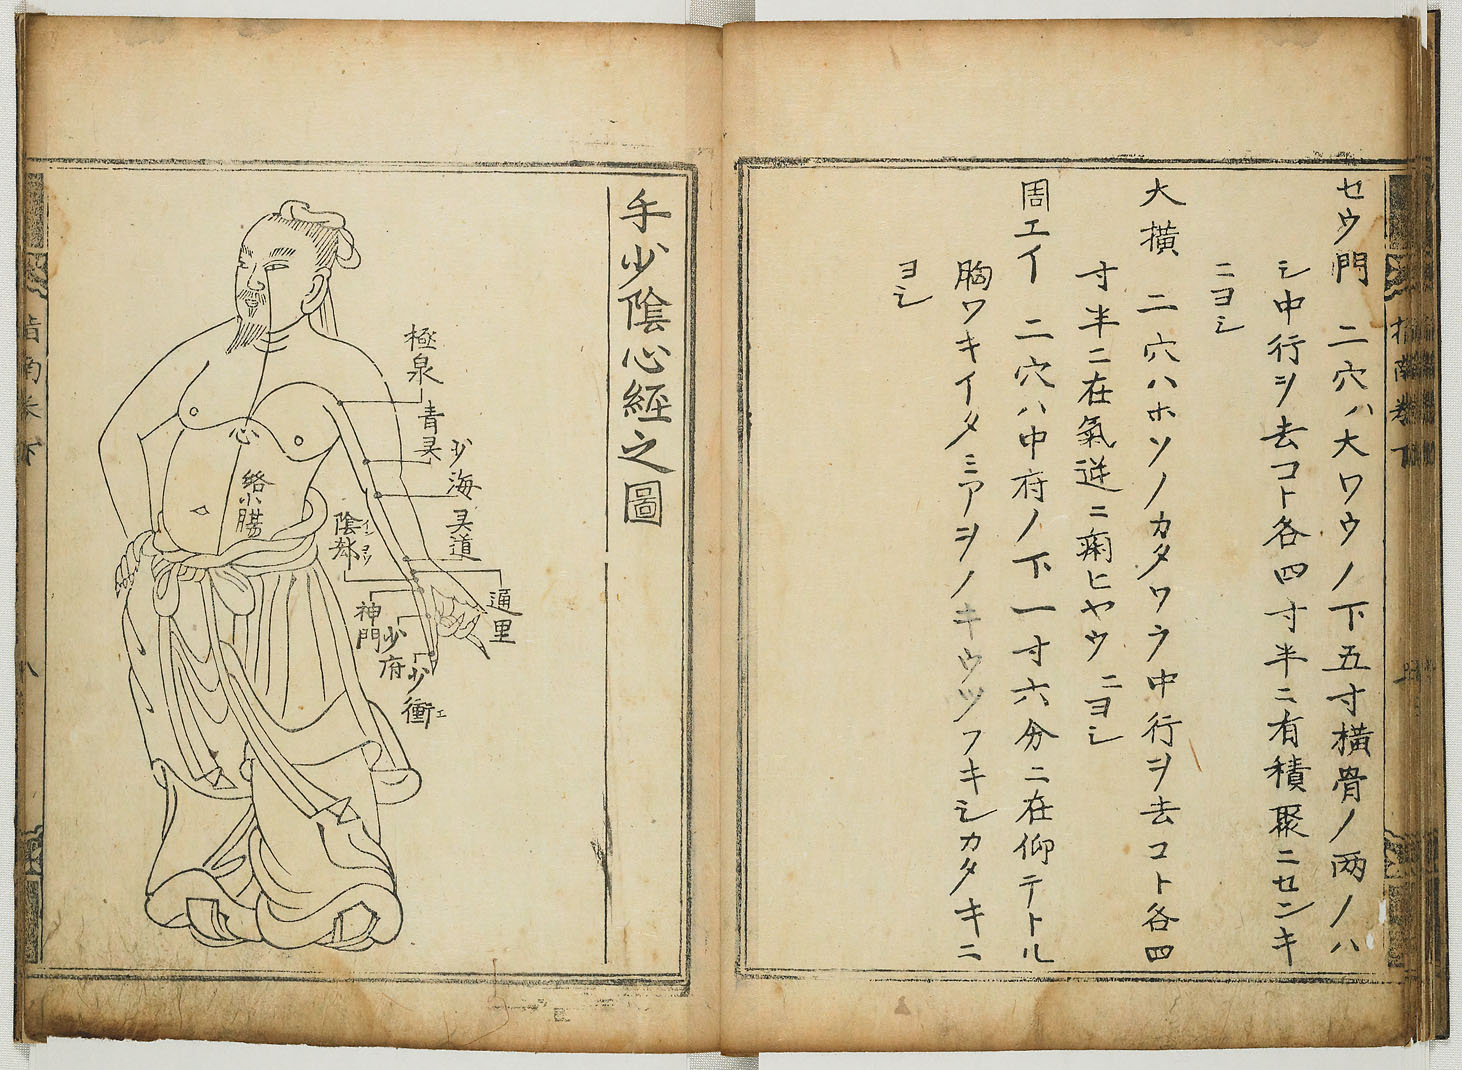 セウ門　二穴ハ大ワウノ下五寸横骨ノ両ノハ
シ中行ヲ去コト各四寸半ニ有積聚ニセンキ
ニヨシ
大横　二穴ハホソノカタワラ中行ヲ去コト各四
寸半ニ在氣逆ニ痢ヒヤウニヨシ
周エイ　二穴ハ中府ノ下一寸六分ニ在仰テトル
胸ワキイタミアヲノキウツフキシカタキニ
ヨシ
手少陰心經之圖
極泉
青灵
少海
灵道
通里
陰郄
神門
少府
少衝
心
絡小腸